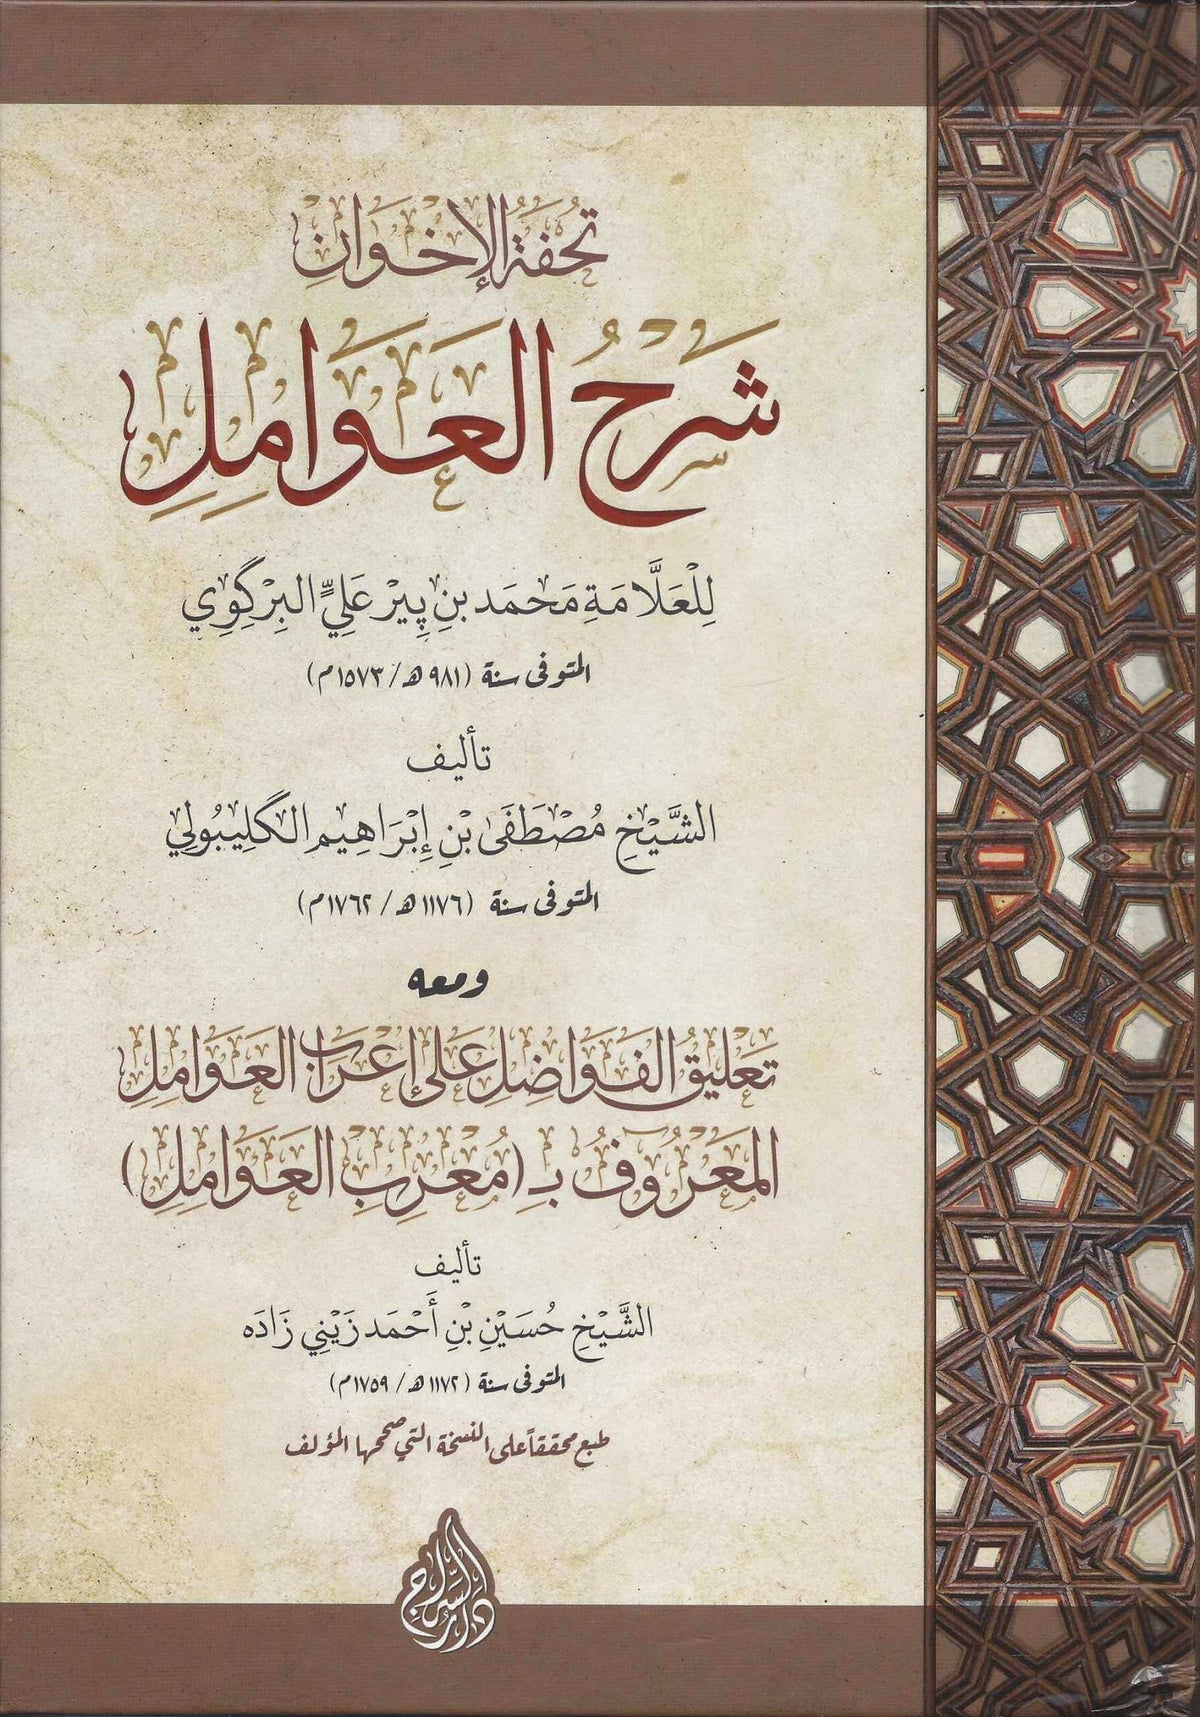 تحفة الإخوان
شرح العوامل
للعلامة محمد بن پير علي البركوي
المتوفى سنة (٩٨١ هـ/ ١٥٧٣م)
تأليف
الشيخ مصطفى بن إبراهيم الگليبولي
المتوفى سنة (١١٧٦ هـ/ ١٧٦٢م)
ومعه
تعليق الفواضل على إعراب العوامل
المعروف بـ (معرب العوامل)
تأليف
الشيخ حسين بن أحمد زيني زاده
المتوفى سنة (١١٧٢ هـ/ ١٧٥٩م)
طبع محققاً على النسخة التي صححها المؤلف
دار السراج